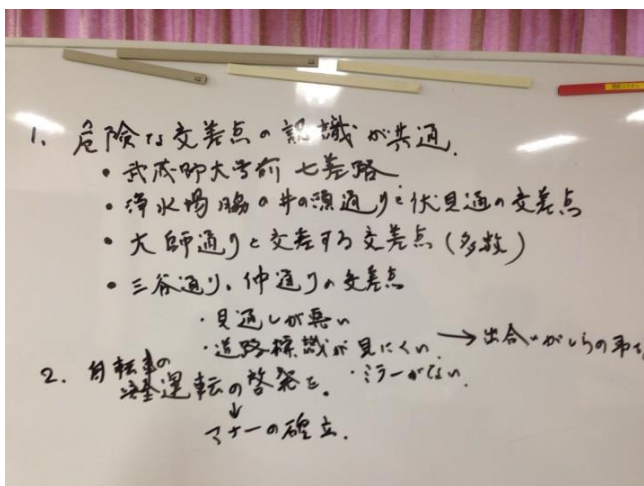 1. 危険な交差点の認識が共通.
・武蔵野大学前 七差路
・浄水場脇の井の頭通りと伏見通の交差点
・大師通りと交差する交差点(多数)
・三谷通り、仲通りの交差点
・見通しが悪い
・道路標識が見にくい. → 出合いがしらの
・ミラーがない.
2. 自転車の
安全運転の啓発を.
↓
マナーの確立.